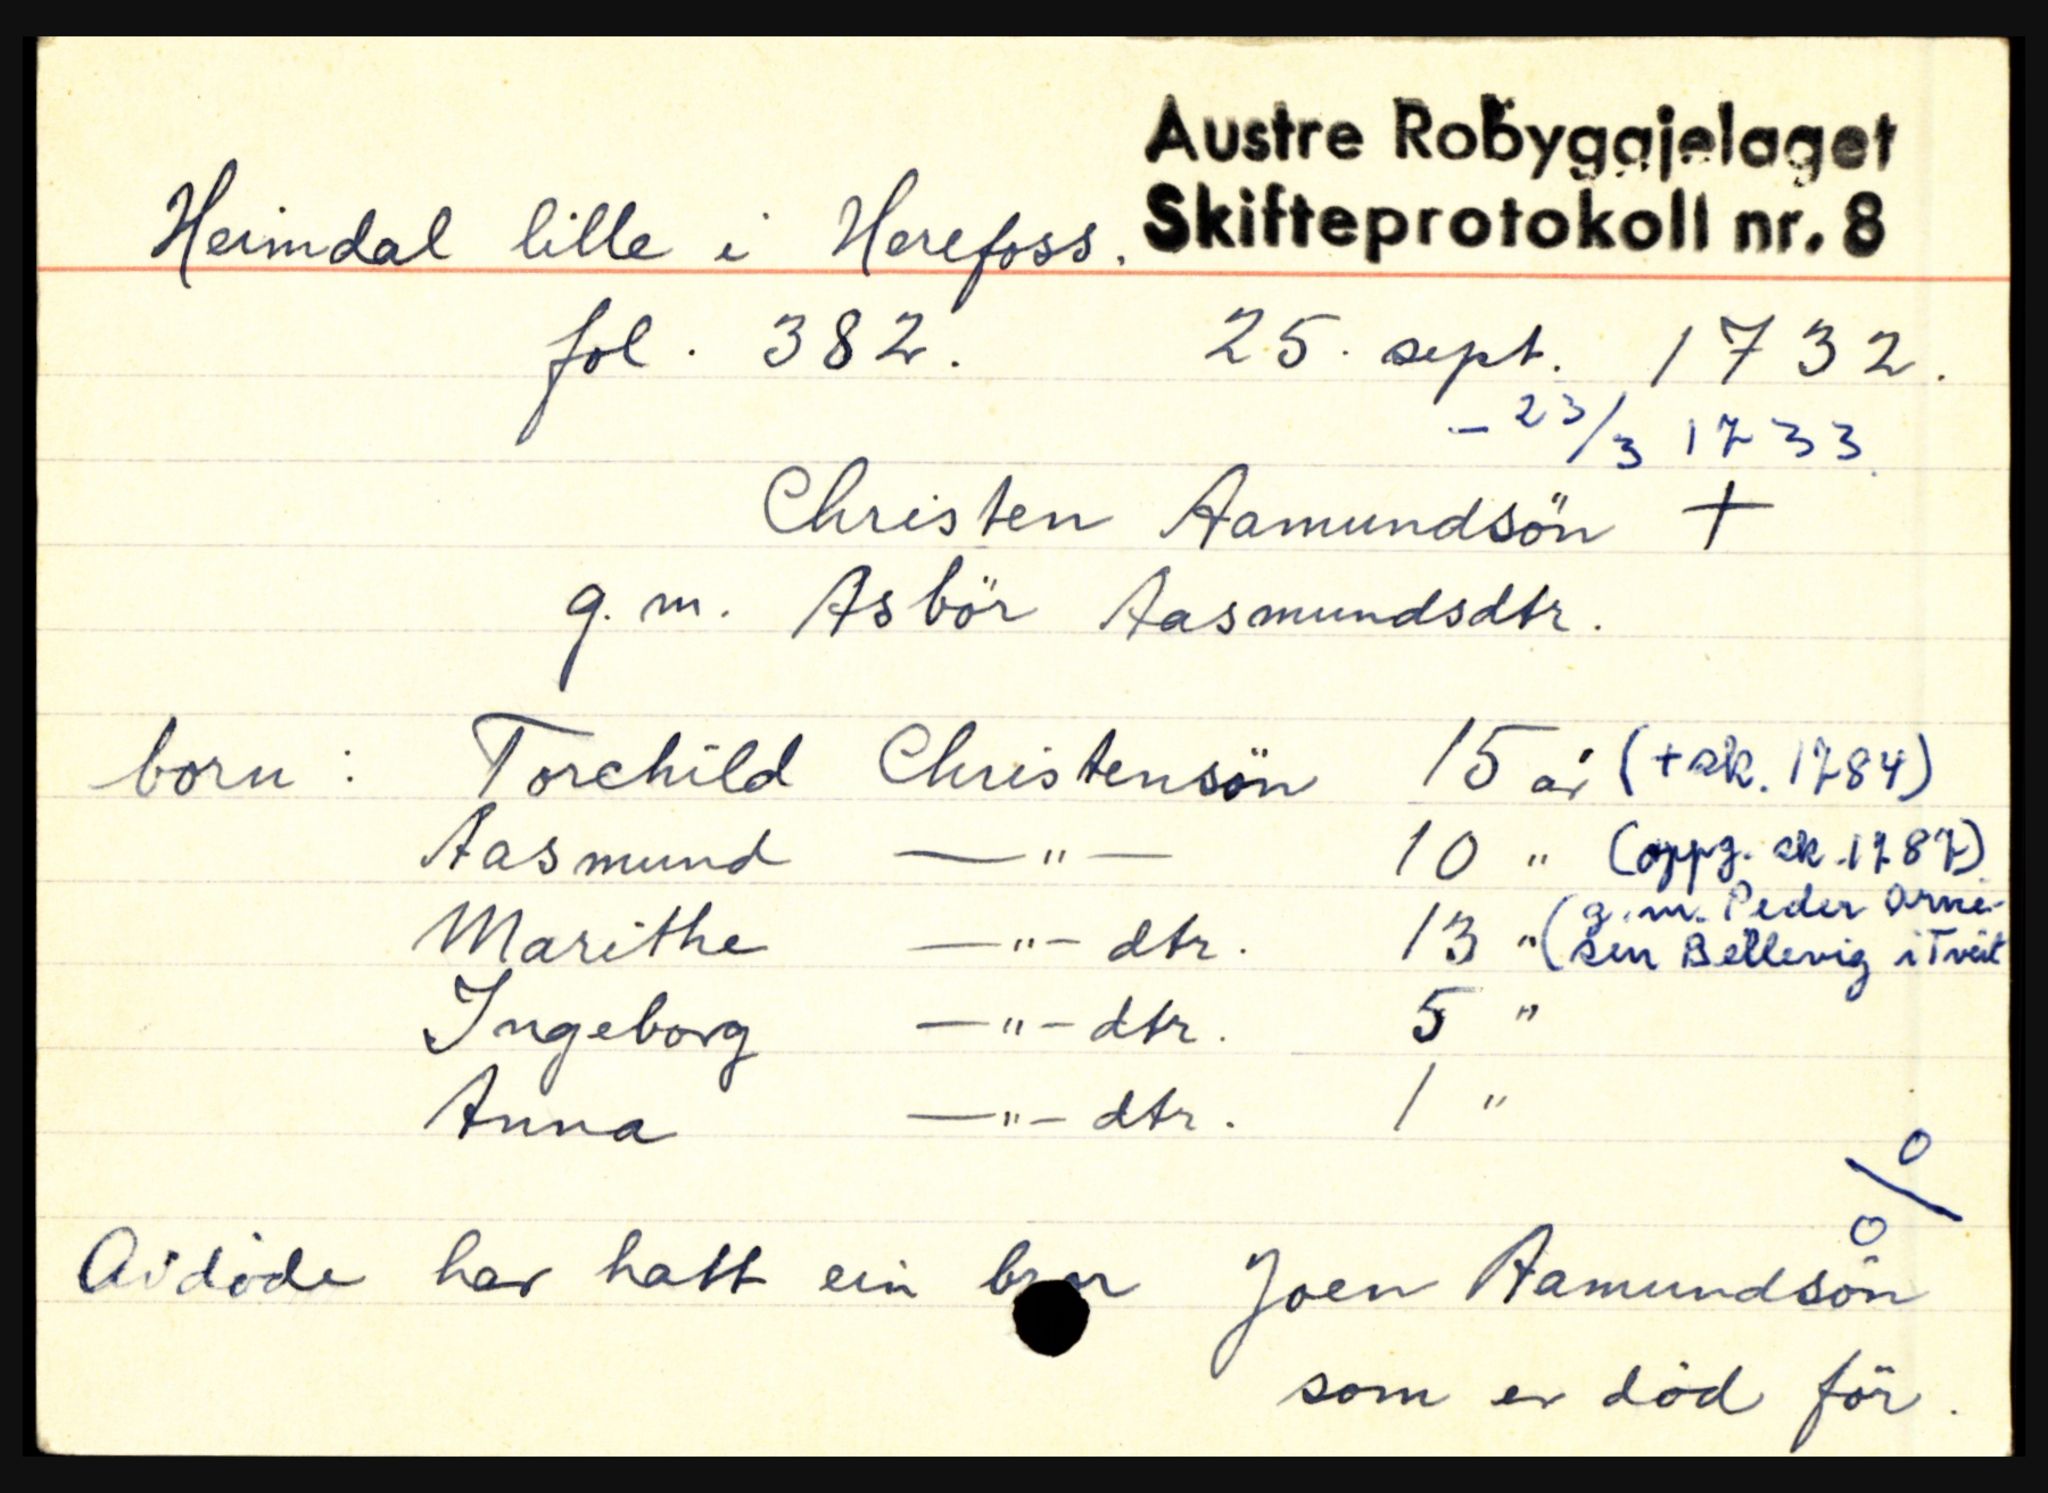 Austre Robyggjelaget
Heimdal lille i Herefoss. Skifteprotokoll nr. 8
fol. 382. 25. sept. 1732.
- 23/3 1733.
Christen Aamundsön +
g. m. Asbör Aasmundsdtr.
born: Torchild Christensön 15 år (+ sk. 1784)
Aasmund —"— 10 " (oppg. sk. 1787)
Marithe —"— dtr. 13 " (g. m. Peder Arne-
sen Bellevig i Tveit
Ingeborg —"— dtr. 5 "
Anna —"— dtr. 1 "
0/0
Avdöde har hatt ein bror Joen Aamundsön
som er död för.